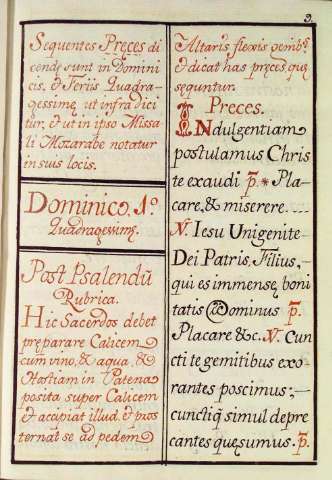 9.
Sequentes Pręces di
cendę sunt in Domini
cis, & Feriis Quadra-
gessimę, ut infra dici
tur, & ut in ipso Missa
li Mozarabe notatur
in suis locis.
Dominico. 1º.
Quadragessimę.
Post Psalendũ
Rubrica.
Hic Sacerdos debet
pręparare Calicem
cum vino, & aqua, &
Hostiam in Patena
posita super Calicem
& accipiat illud, & pros
ternat se ad pedem
Altaris flexis genibꝰ
& dicat has pręces quę
sequntur.
Pręces.
INdulgentiam
postulamus Chris
te exaudi p. * Pla-
care, & miserere....
V. Iesu Unigenite
Dei Patris, Filius,
qui es immensę, boni
tatis Dominus p.
Placare &c. V. Cun
cti te gemitibus exo-
rantes poscimus;-
cunctiq́ simul depre
cantes quęsumus. p.